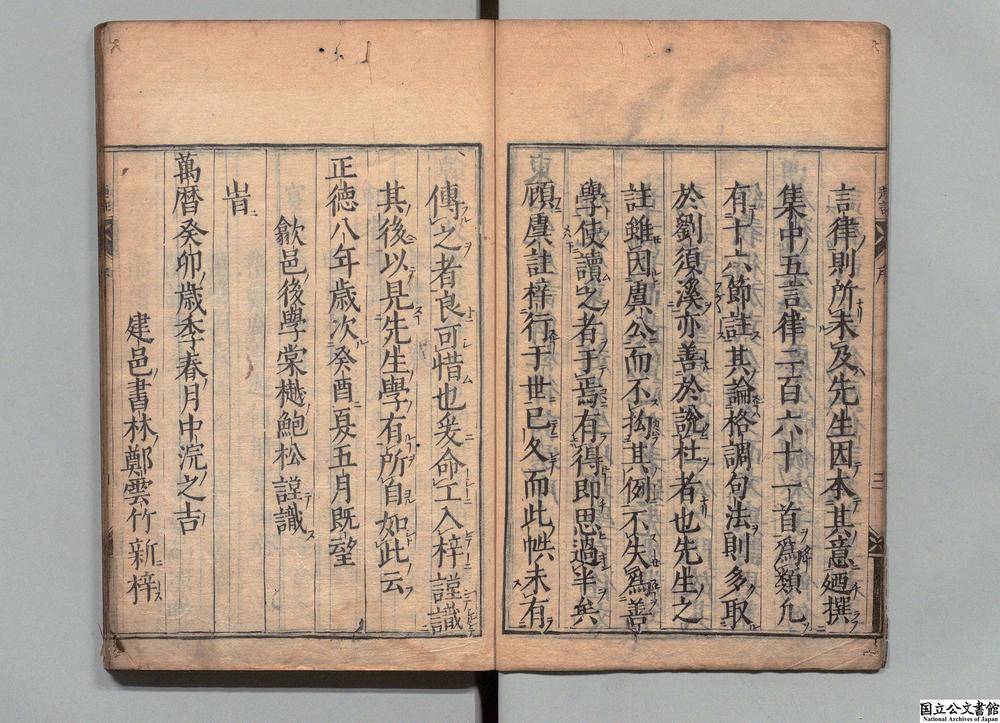 言律則所未及先生因本其意廼撰
集中五言律二百六十一首為類凡
有十六節註其論格調句法則多取
於劉須溪亦善於說杜者也先生之
註雖因虞公而不拘其例不失為善
學使讀之者于焉有得即思過半矣
顧虞註梓行于世已久而此帙未有
傳之者良可惜也爰命工入梓謹識
其後以見先生學有所自如此云
正德八年歲次癸酉夏五月既望
歙邑後學棠樾鮑松謹識
旹
萬曆癸卯歲季春月中浣之吉
建邑書林鄭雲竹新梓
国立公文書館
National Archives of Japan